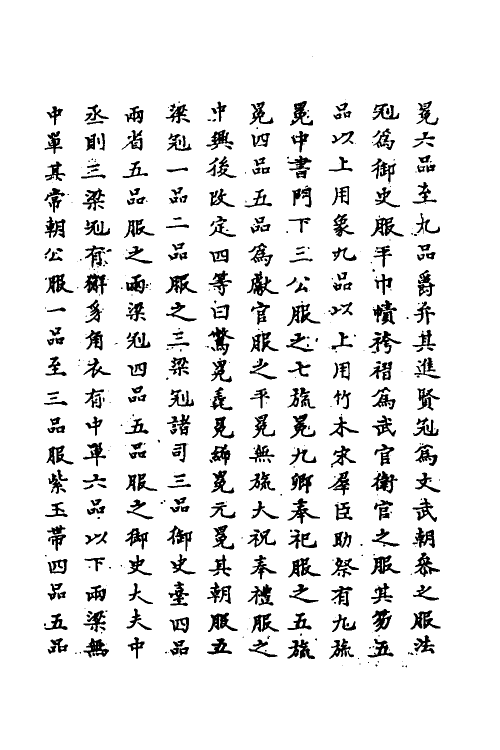 冕六品至九品爵弁其進賢冠爲文武朝叅之服法
冠爲御史服平巾幘袴褶爲武官衛官之服其笏五
品以上用象九品以上用竹木宋羣臣助祭有九旒
冕中書門下三公服之七旒冕九卿奉祀服之五旒
冕四品五品爲獻官服之平冕無旒大祝奉禮服之
中興後改定四等曰鷩冕毳冕絺冕元冕其朝服五
梁冠一品二品服之三梁冠諸司三品御史臺四品
兩省五品服之兩梁冠四品五品服之御史大夫中
丞則三梁冠有獬豸角衣有中單六品以下兩梁無
中單其常朝公服一品至三品服紫玉帶四品五品